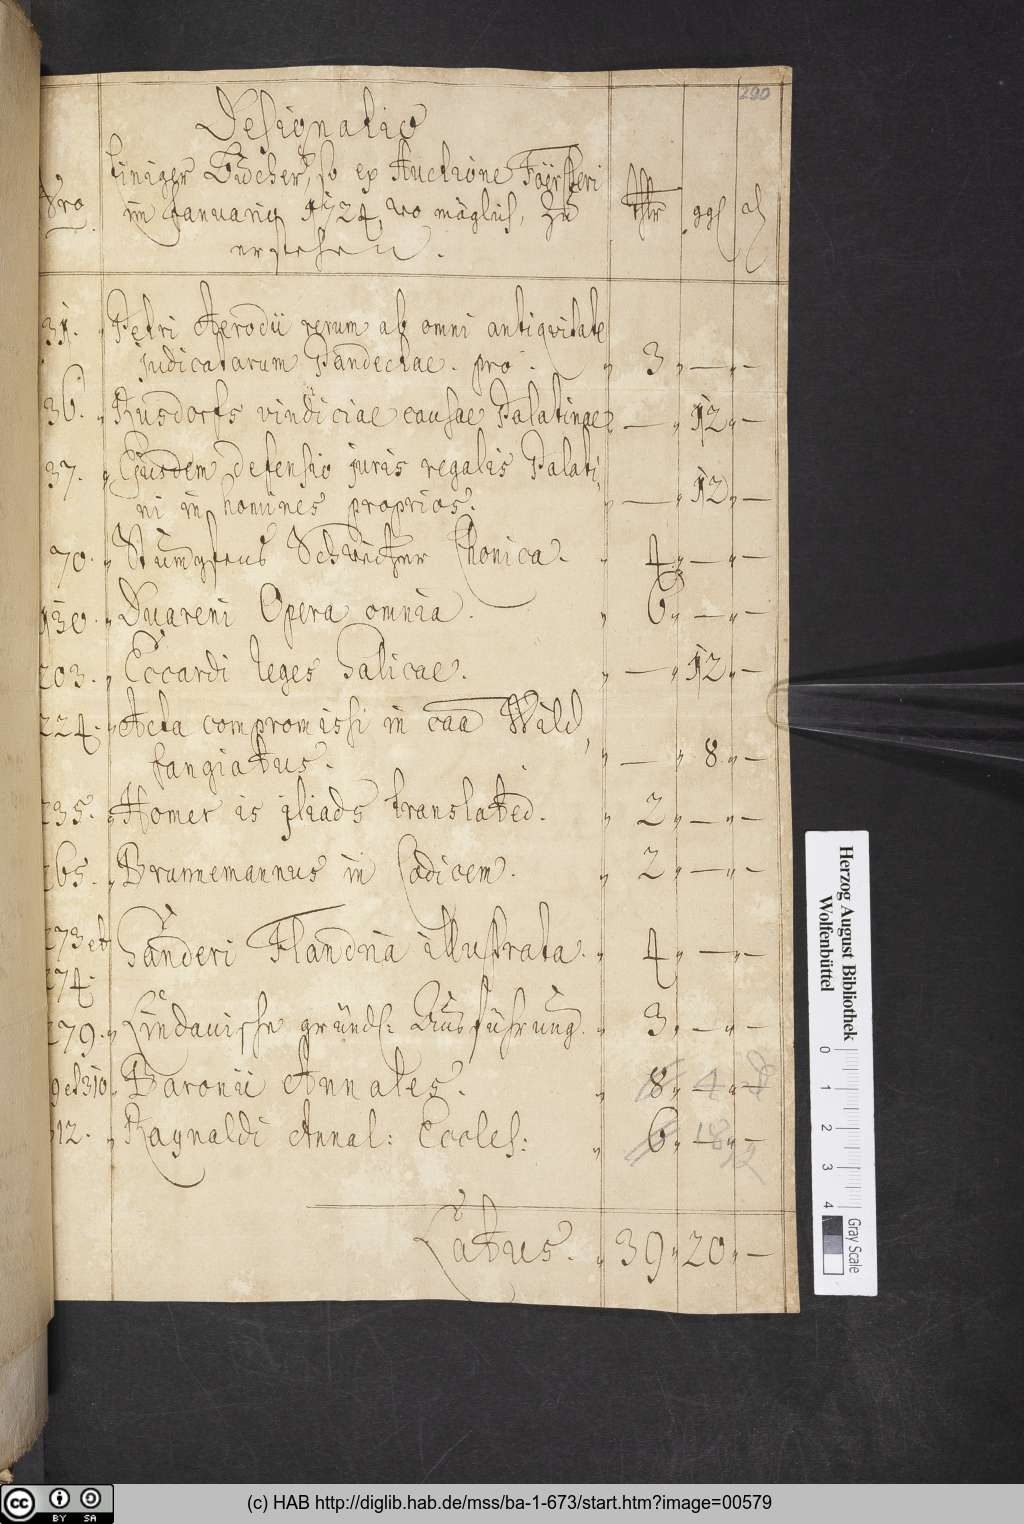 290
Designatio
Einiger Bücher, so ex Auctione Försteri
Nro im Januario 1724 wo möglich, zu thlr ggl ₰
erstehen.
31. Petri Aerodii rerum ab omni antiqvitate
judicatarum Pandectae. pro. „ 3 „ — „ —
36. „ Rusdorfs vindiciae causae Palatinae „ — „ 12 „ —
37. „ Ejusdem defensio juris regalis Palati,
ni in homines proprios. „ — „ 12 „ —
70. „ Stumpfens Schweitzer Chonica. „ 4 „ — „ —
130. „ Duareni Opera omnia. „ 6 „ — „ —
203. „ Eccardi leges Salicae. „ — „ 12 „ —
224. „ Acta compromissi in caa Wild,
fangiatus. „ — „ 8 „ —
235. „ Homer is jliads translated. „ 2 „ — „ —
265. „ Brunnemannus in Codicem. „ 2 „ — „ —
273 et Sanderi Flandria illustrata. „ 4 „ — „ —
274.
279. „ Lindauische gründl: Ausführung. „ 3 „ — „ —
9 et 310. „ Baronii Annales. „ 8 „ — „ —
12. „ Raynaldi Annal: Eccles: „ 6 „ — „ —
Latus. „ 39 „ 20 „ —
Herzog August Bibliothek
Wolfenbüttel
0 1 2 3 4
Gray Scale
cc BY SA
(c) HAB http://diglib.hab.de/mss/ba-1-673/start.htm?image=00579